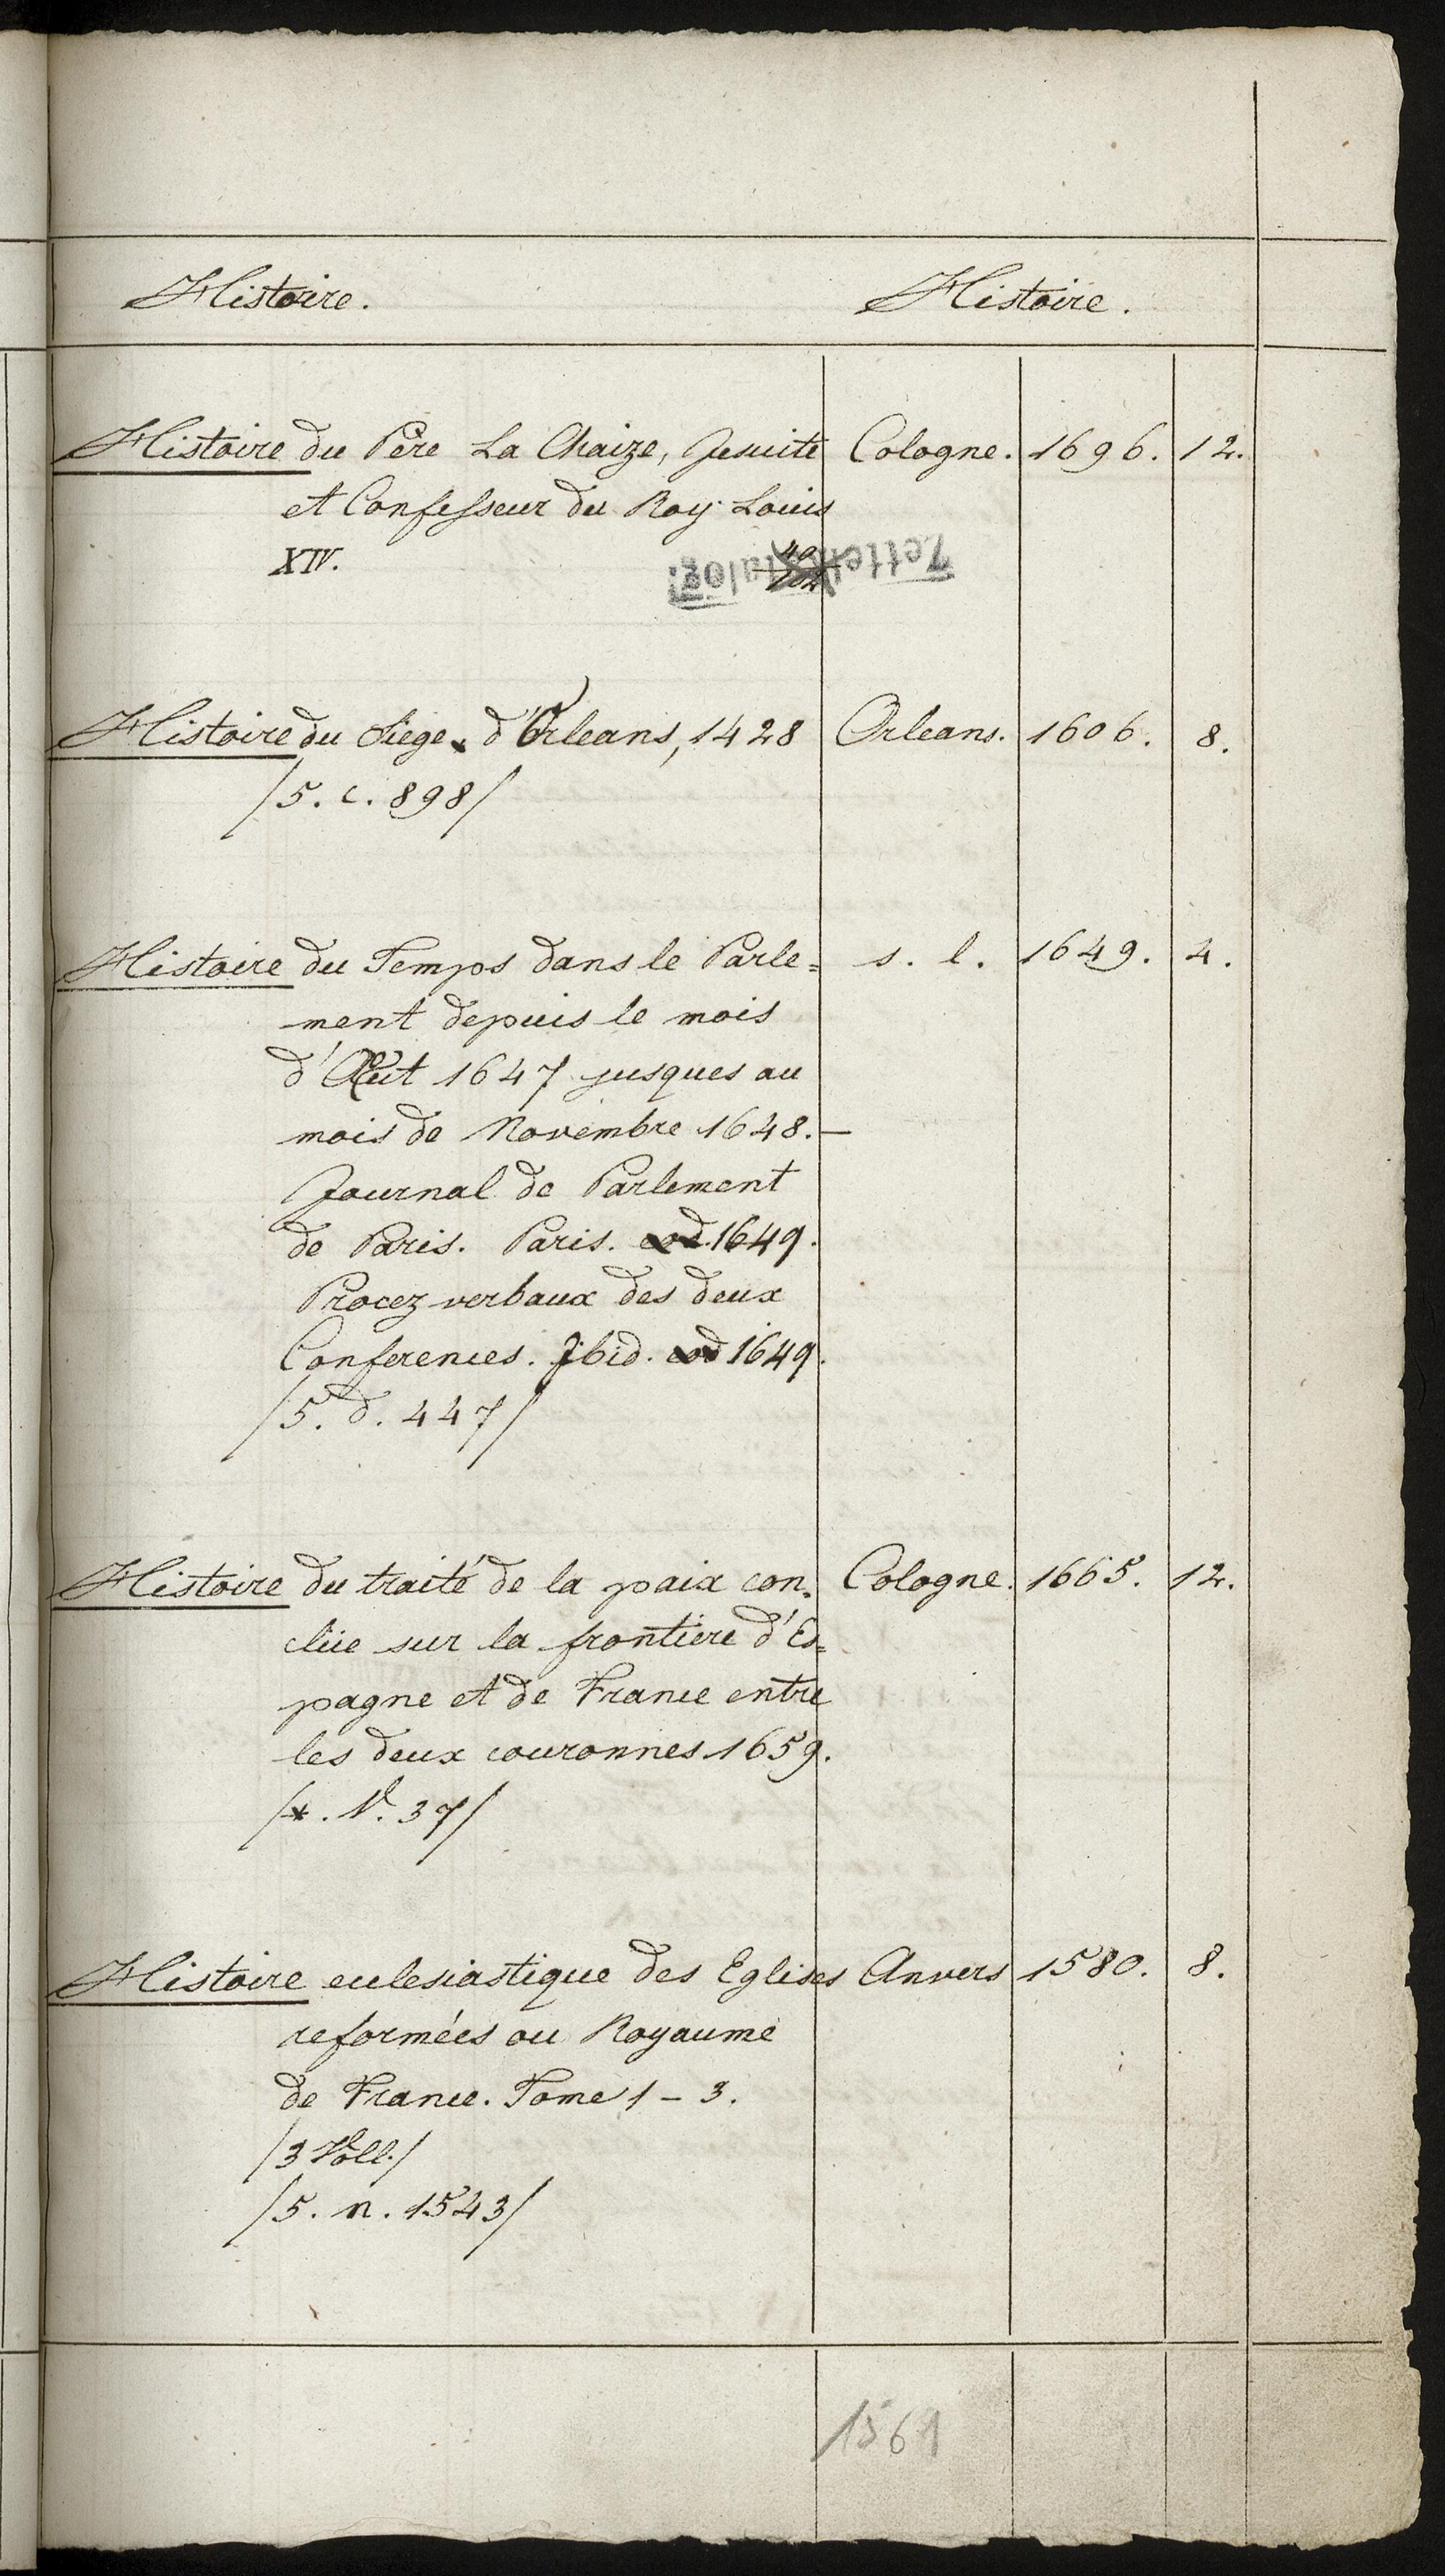 Histoire. Histoire.
Histoire du Père La Chaize, Jesuite Cologne. 1696. 12.
et Confesseur du Roy Louis
XIV.
Zettelkatalog.
Histoire du Siege d'Orleans, 1428 Orleans. 1606. 8.
/5. c. 898/
Histoire du Temps dans le Parle= s. l. 1649. 4.
ment depuis le mois
d'Aout 1647 jusques au
mois de Novembre 1648.—
Journal de Parlement
de Paris. Paris. 1649.
Procez verbaux des deux
Conferences. Jbid. 1649.
/5. d. 447/
Histoire du traité de la paix con= Cologne. 1665. 12.
clüe sur la frontiere d'Es=
pagne et de France entre
les deux couronnes 1659.
/*. V. 37/
Histoire ecclesiastique des Eglises Anvers 1580. 8.
reformées au Royaume
de France. Tome 1 – 3.
/3 Voll./
/5. n. 1543/
1569